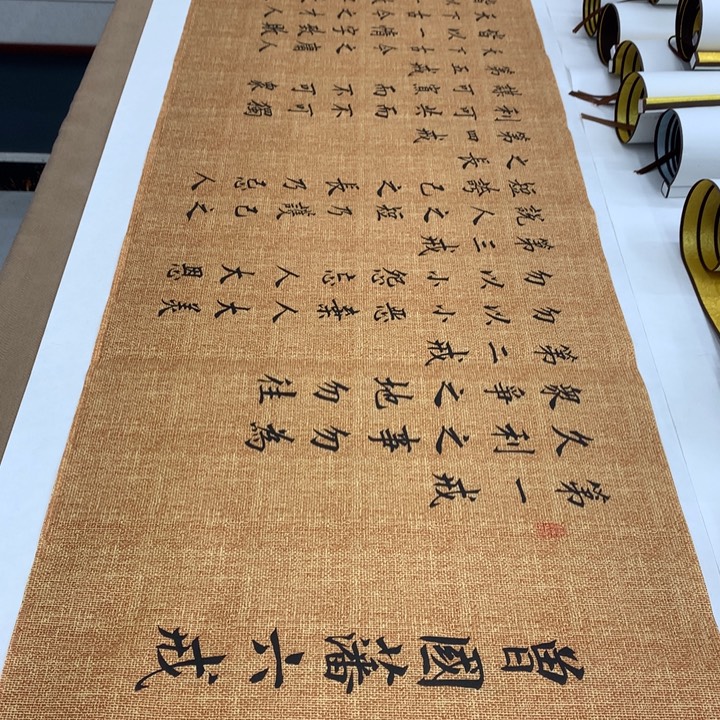 曾國藩六戒
第一戒
久利之事勿為
眾爭之地勿往
第二戒
勿以小恶棄人大美
勿以小怨忘人大恩
第三戒
說人之短乃護己之
短誇己之長乃忌人
之長
第四戒
利可共而不可獨
謀可寡而不可眾
第五戒
天下古今之庸人
皆以一惰字致敗
天下古今之才人